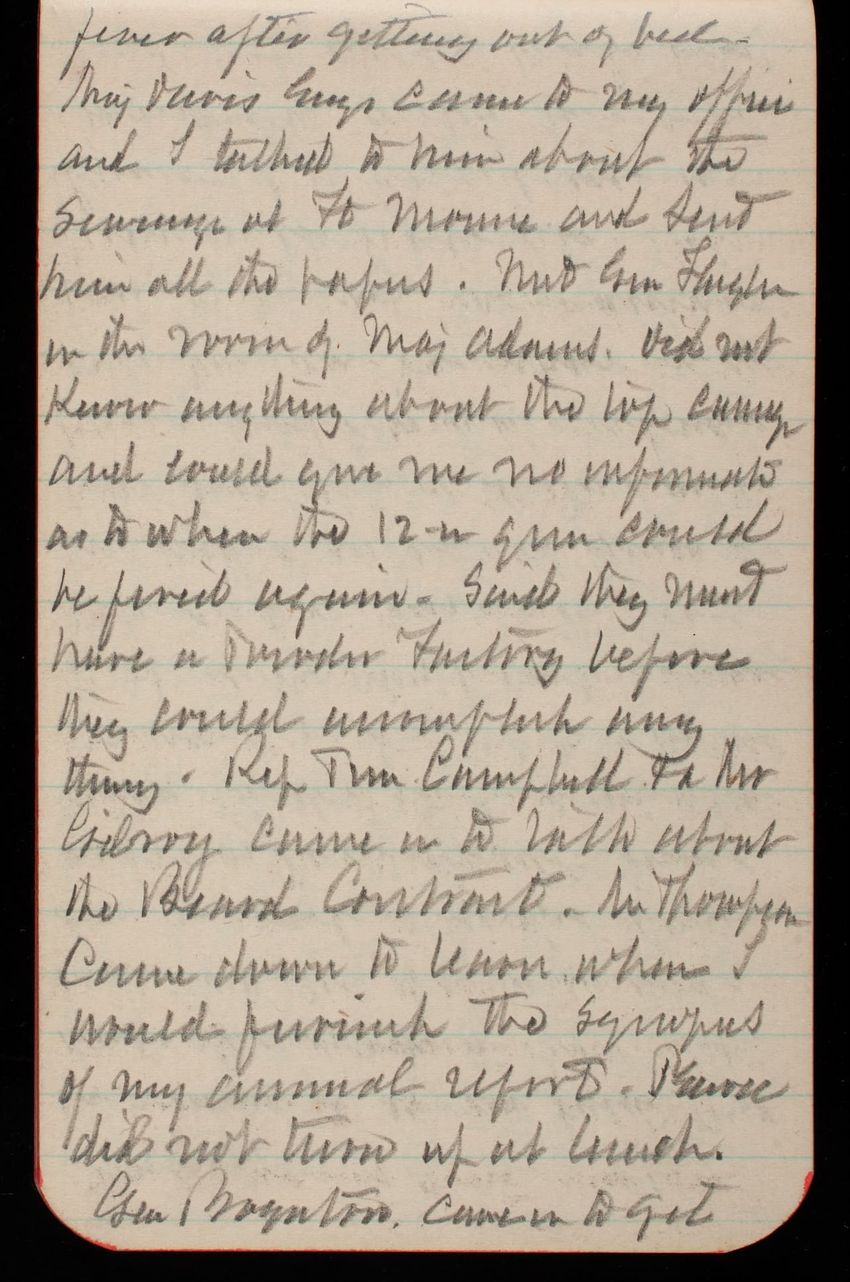 fever after getting out of bed -
Maj Davis Engs came to my office
and I talked to him about the
Sewerage at Ft Monroe and Sent
him all the papers. Met Gen Flagler
in the room of Maj Adams. Did not
Know anything about the
and could give me no informatn
as to when the 12-in gun could
be fired again - Said they must
have a Powder Factory before
they could accomplish any
thing. Rep Tim Campbell & Mr
Gilroy came in to talk about
the Board Contract. Mr Thompson
Came down to learn when I
would furnish the Synopsis
of my annual report.
did not turn up at lunch.
Gen Boynton. came in to get